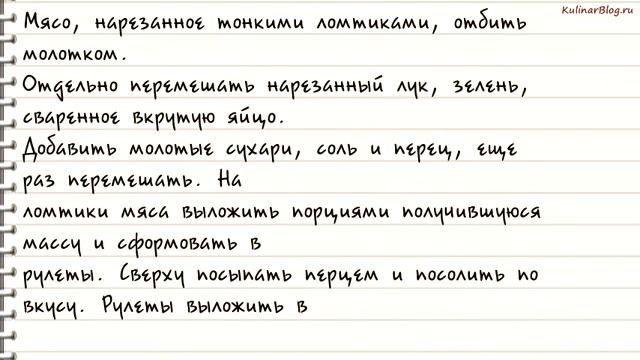 KulinarBlog.ru
Мясо, нарезанное тонкими ломтиками, отбить
молотком.
Отдельно перемешать нарезанный лук, зелень,
сваренное вкрутую яйцо.
Добавить молотые сухари, соль и перец, еще
раз перемешать. На
ломтики мяса выложить порциями получившуюся
массу и сформовать в
рулеты. Сверху посыпать перцем и посолить по
вкусу. Рулеты выложить в